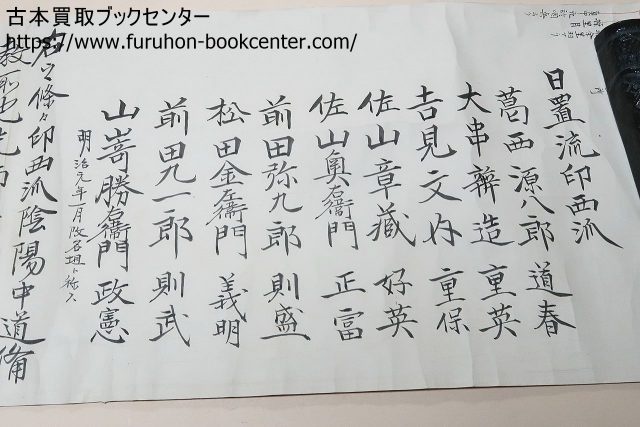 古本買取ブックセンター
https://www.furuhon-bookcenter.com/
日置流印西派
葛西源八郎 道春
大串彝造 重英
吉見文内 重保
佐山章蔵 好英
佐山奥右衛門 正富
前田弥九郎 則盛
松田金左衛門 義明
前田九一郎 則武
山嵜勝右衛門 政憲
明治元年一月改名垣ト称ス
右之條々印西派陰陽中道備